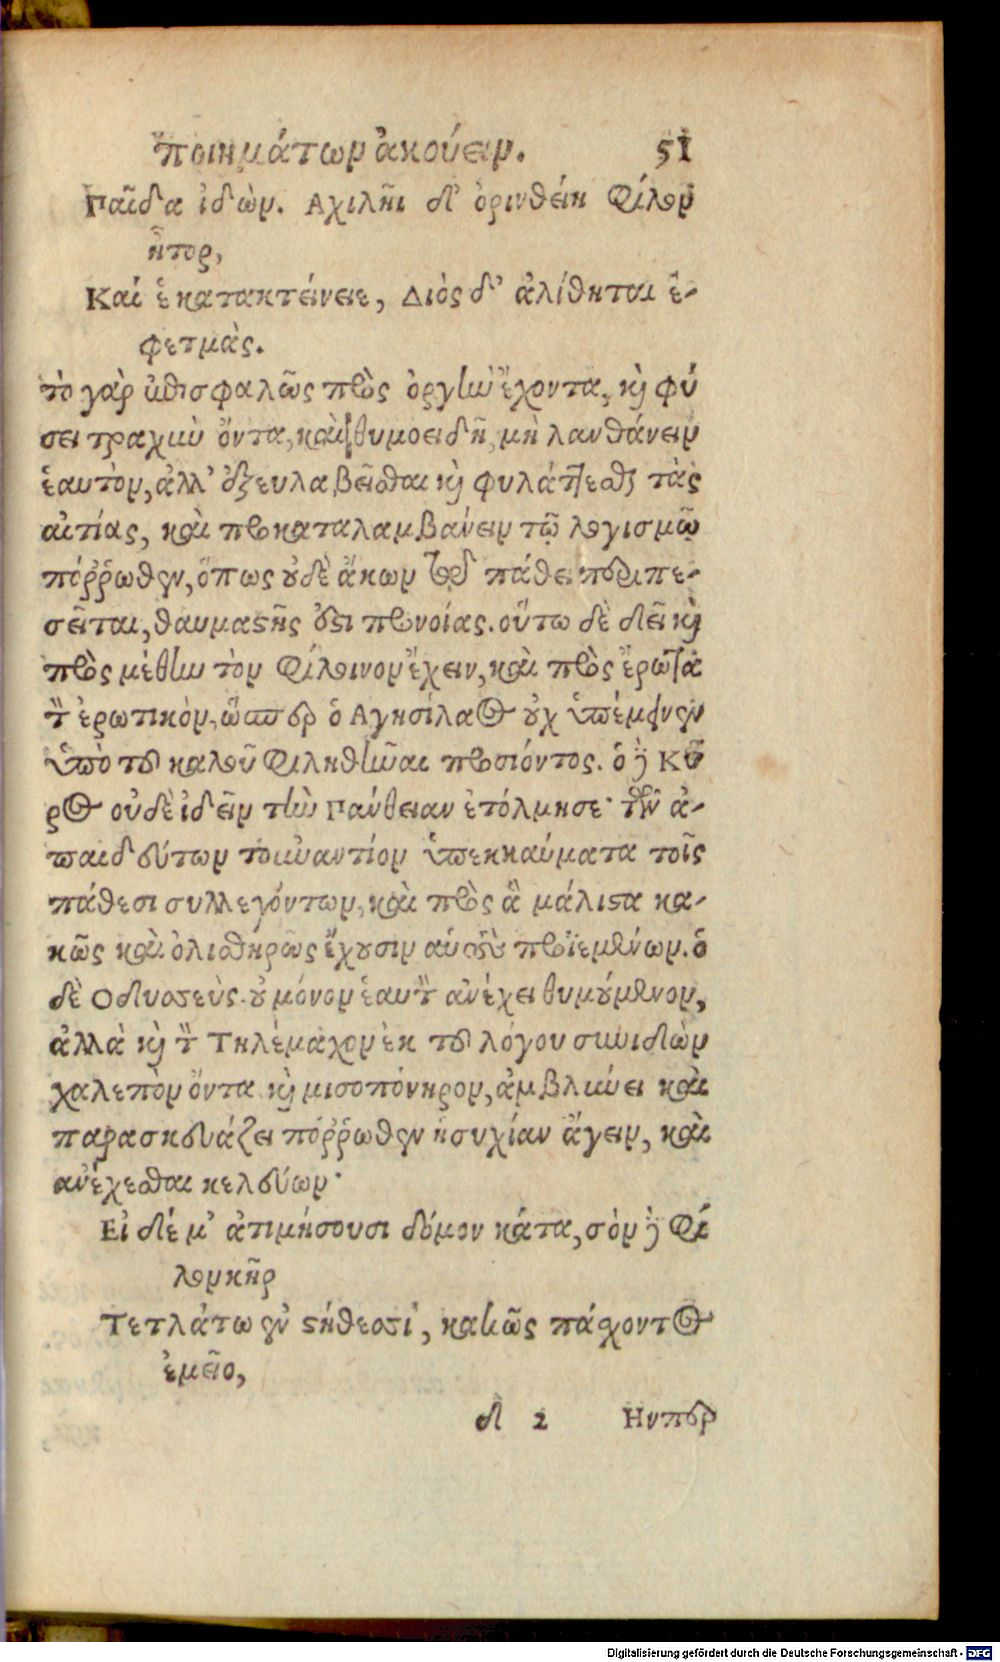 ποιημάτων ἀκούειν. 51
Παῖδα ἰδὼν. Αχιλῆι δ' ὀρινθείη φίλον
ἦτορ,
Καί ἑ κατακτείνειε, Διὸς δ' ἀλίθηται ἐ-
φετμὰς.
τὸ γὰρ ἐπισφαλῶς πρὸς ὀργὴν ἔχοντα, καὶ φύ
σει τραχὺν ὄντα, καὶ θυμοειδῆ, μὴ λανθάνειν
ἑαυτὸν, ἀλλ' ἐξευλαβεῖσθαι καὶ φυλάττεσθαι τὰς
αἰτίας, καὶ προκαταλαμβάνειν τῷ λογισμῷ
πόῤῥωθεν, ὅπως οὐδὲ ἄκων τῷ πάθει περιπε-
σεῖται, θαυμαστῆς ἐστι προνοίας. οὕτω δὲ δεῖ καὶ
πρὸς μέθην τὸν φίλοινον ἔχειν, καὶ πρὸς ἔρωτα
τὸν ἐρωτικὸν, ὥσπερ ὁ Αγησίλαος οὐχ ὑπέμεινεν
ὑπὸ τοῦ καλοῦ φιληθῆναι προσιόντος. ὁ δὲ Κῦ
ρος οὐδὲ ἰδεῖν τὴν Πάνθειαν ἐτόλμησε· τῶν ἀ-
παιδεύτων τοὐναντίον ὑπεκκαύματα τοῖς
πάθεσι συλλεγόντων, καὶ πρὸς ἃ μάλιστα κα-
κῶς καὶ ὀλισθηρῶς ἔχουσιν αὑτοὺς προϊεμένων. ὁ
δὲ Οδυσσεὺς οὐ μόνον ἑαυτὸν ἀνέχει θυμούμενον,
ἀλλὰ καὶ τὸν Τηλέμαχον ἐκ τοῦ λόγου συνιδὼν
χαλεπὸν ὄντα καὶ μισοπόνηρον, ἀμβλύνει καὶ
παρασκευάζει πόῤῥωθεν ἡσυχίαν ἄγειν, καὶ
ἀνέχεσθαι κελεύων·
Εἰ δέ μ' ἀτιμήσουσι δόμον κάτα, σὸν δὲ φί
λον κῆρ
Τετλάτω ἐν στήθεσσι, κακῶς πάσχοντος
ἐμεῖο,
d 2 Ηνπερ
Digitalisierung gefördert durch die Deutsche Forschungsgemeinschaft - DFG